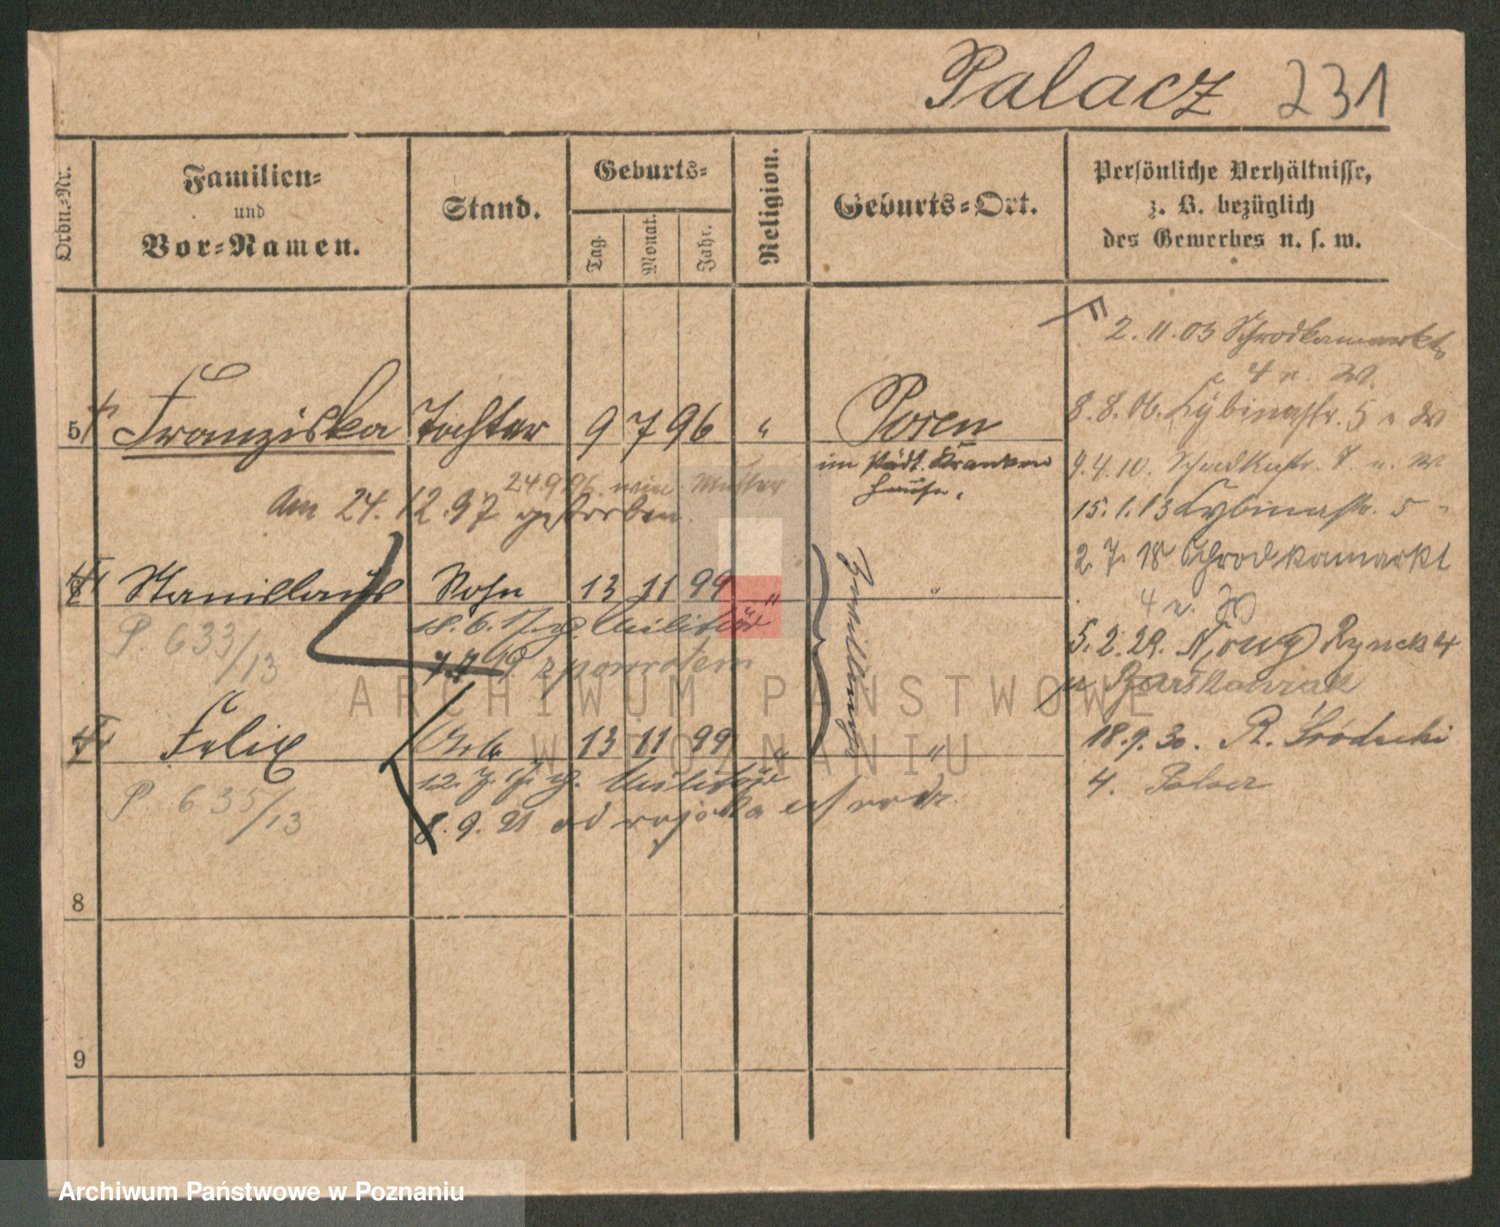 Palacz 231
Ordn.-Nr.
Familien-
und
Vor-Namen.
Stand.
Geburts-
Tag.
Monat.
Jahr.
Religion.
Geburts-Ort.
Persönliche Verhältnisse,
z. B. bezüglich
des Gewerbes u. s. w.
5 Franziska Tochter 9 7 96 " Posen
im städt. Kranken
hause.
24 9 96 Mutter
Am 24. 12. 97 gestorben.
Stanislaus Sohn 13 11 99 " "
P. 633/13
18. 6. 17 z. Militär
z powrotem
Zwillinge
Felix 13 11 99 " "
P. 635/13
12. 7. 17. z. Militär
8. 9. 21 od wojska
8
9
2. 11. 03 Schrodkamarkt
4 v. W.
8. 8. 06. Cybinastr. 5 v. W
9. 4. 10. Schrodkastr. v. W
15. 1. 13 Cybinastr. 5
2. 7. 18 Schrodkamarkt
4 v.
5. 2. 21. Nowy Rynek 4
18. 9. 30. R. Śródecki
4.
ARCHIWUM PAŃSTWOWE
W POZNANIU
Archiwum Państwowe w Poznaniu